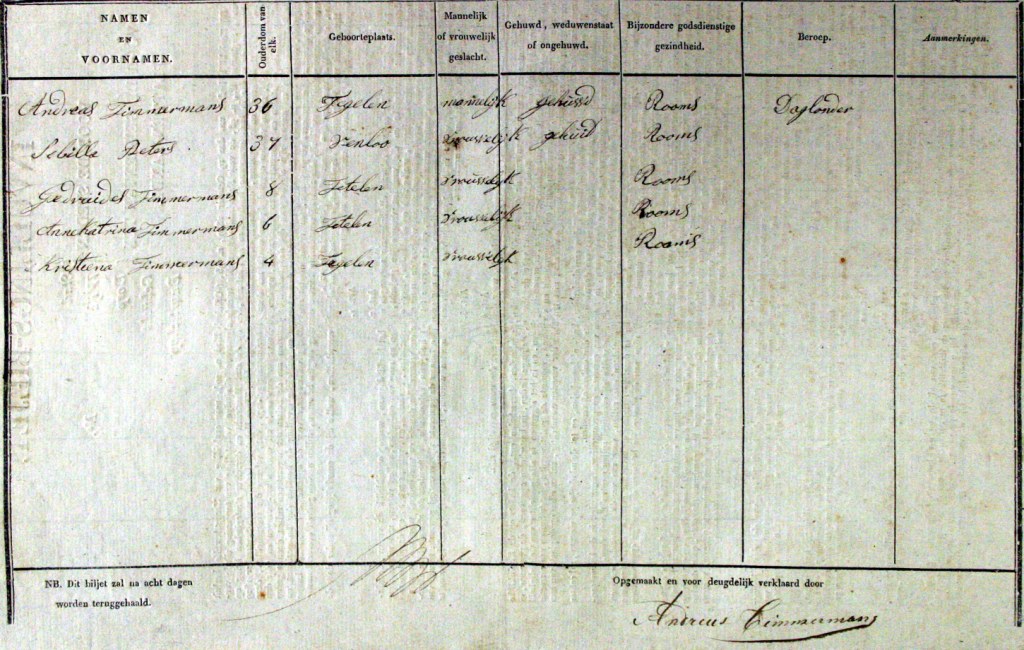 NAMEN EN VOORNAMEN. Ouderdom van elk. Geboorteplaats. Mannelijk of vrouwelijk geslacht. Gehuwd, weduwenstaat of ongehuwd. Bijzondere godsdienstige gezindheid. Beroep. Aanmerkingen.
Andreas Timmermans 36 Tegelen mannelijk gehüwd Rooms Daglonder
Sebilla Peters 37 Venloo Vrouwelijk gehuid Rooms
Gedruides Timmermans 8 Tetelen Vrouwelijk Rooms
Annekatrina Timmermans 6 Tetelen Vrouwelijk Rooms
Kristeena Timmermans 4 Tegelen Vrouwelijk Rooms
NB. Dit biljet zal na acht dagen
worden teruggehaald.
Opgemaakt en voor deugdelijk verklaard door
Andreus Timmermans